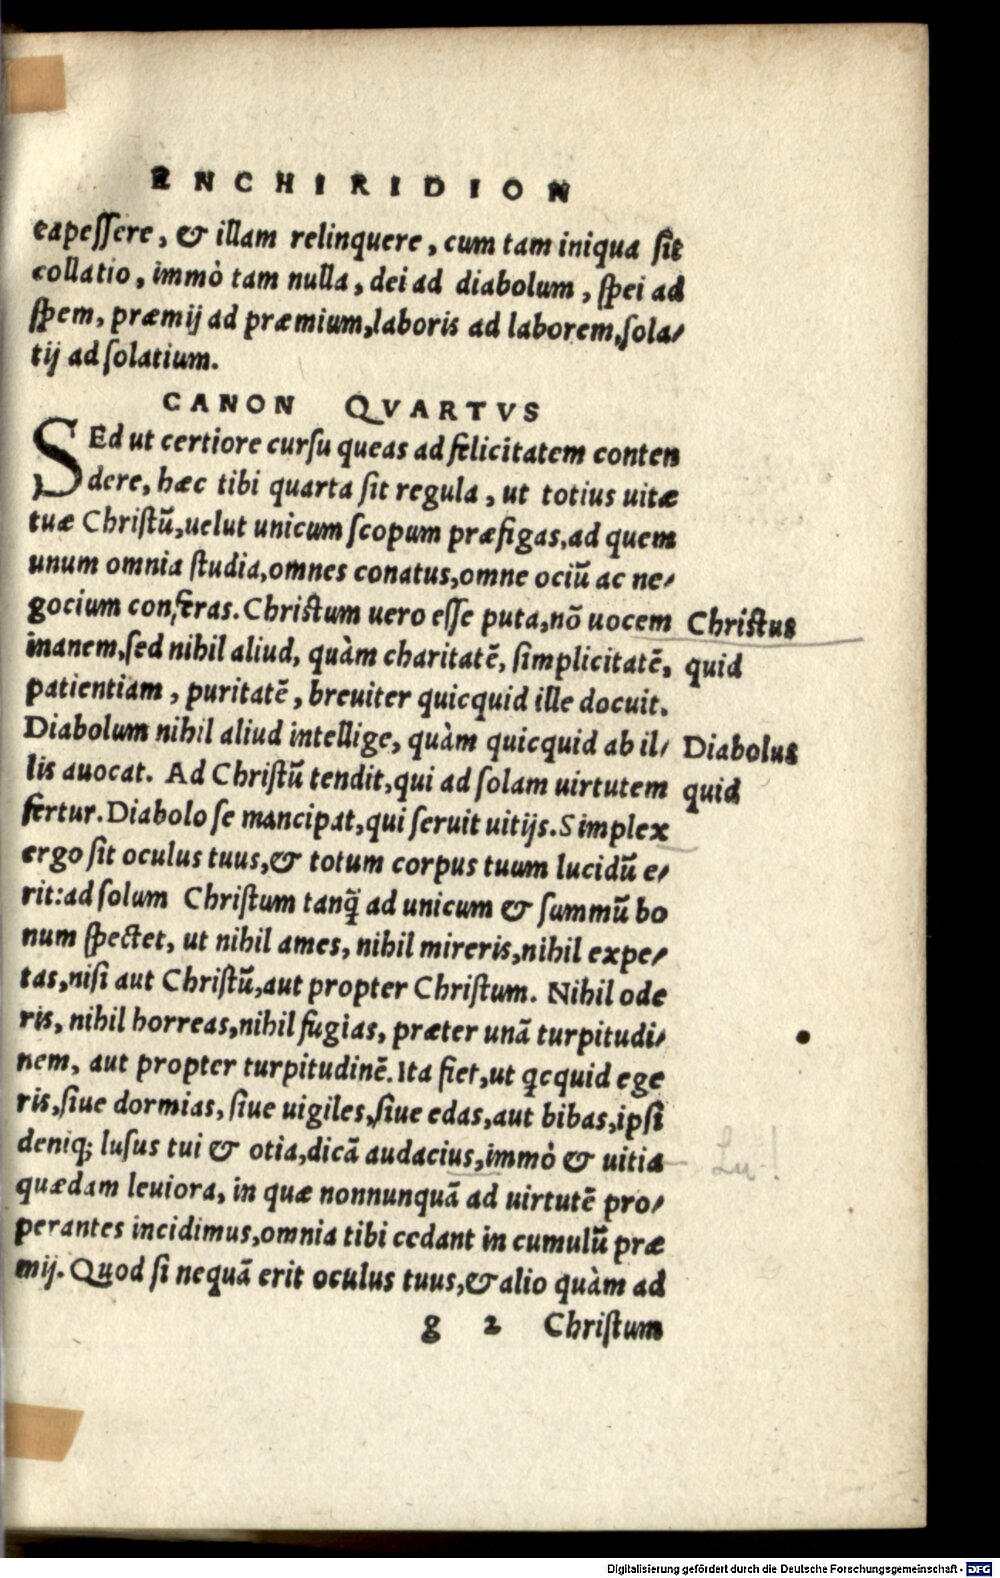 ENCHIRIDION
capessere, & illam relinquere, cum tam iniqua sit
collatio, immò tam nulla, dei ad diabolum, spei ad
spem, præmij ad præmium, laboris ad laborem, sola/
tij ad solatium.
CANON QVARTVS
SEd ut certiore cursu queas ad felicitatem conten
dere, hæc tibi quarta sit regula, ut totius uitæ
tuæ Christũ, uelut unicum scopum præfigas, ad quem
unum omnia studia, omnes conatus, omne ociũ ac ne/
gocium conferas. Christum uero esse puta, nõ uocem Christus
inanem, sed nihil aliud, quàm charitatẽ, simplicitatẽ, quid
patientiam, puritatẽ, breuiter quicquid ille docuit.
Diabolum nihil aliud intellige, quàm quicquid ab il/ Diabolus
lis auocat. Ad Christũ tendit, qui ad solam uirtutem quid
fertur. Diabolo se mancipat, qui seruit uitijs. Simplex
ergo sit oculus tuus, & totum corpus tuum lucidũ e/
rit: ad solum Christum tanq̃ ad unicum & summũ bo
num spectet, ut nihil ames, nihil mireris, nihil expe/
tas, nisi aut Christũ, aut propter Christum. Nihil ode
ris, nihil horreas, nihil fugias, præter unã turpitudi/
nem, aut propter turpitudinẽ. Ita fiet, ut qcquid ege
ris, siue dormias, siue uigiles, siue edas, aut bibas, ipsi
deniq; lusus tui & otia, dicã audacius, immò & uitia
quædam leuiora, in quæ nonnunquã ad uirtutẽ pro/
perantes incidimus, omnia tibi cedant in cumulũ præ
mij. Quod si nequã erit oculus tuus, & alio quàm ad
g 2 Christum
Digitalisierung gefördert durch die Deutsche Forschungsgemeinschaft - DFG